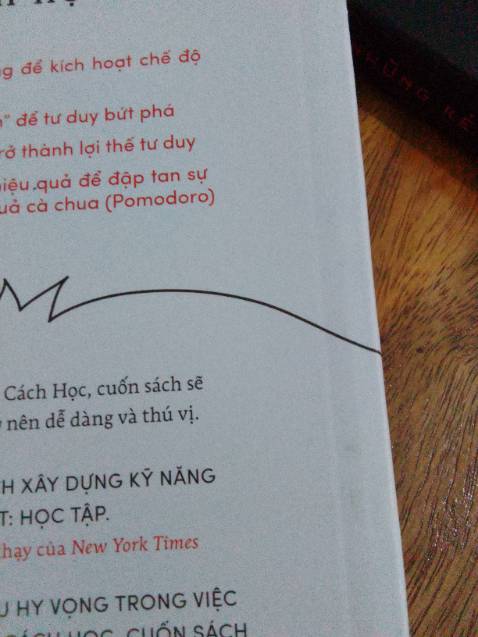 g để kích hoạt chế độ
" để tư duy bứt phá
rở thành lợi thế tư duy
iệu quả để đập tan sự
uả cà chua (Pomodoro)
Cách Học, cuốn sách sẽ
nên dễ dàng và thú vị.
H XÂY DỰNG KỸ NĂNG
T: HỌC TẬP.
hạy của New York Times
U HY VỌNG TRONG VIỆC
CÁCH HỌC, CUỐN SÁCH
HỮNG KẺ